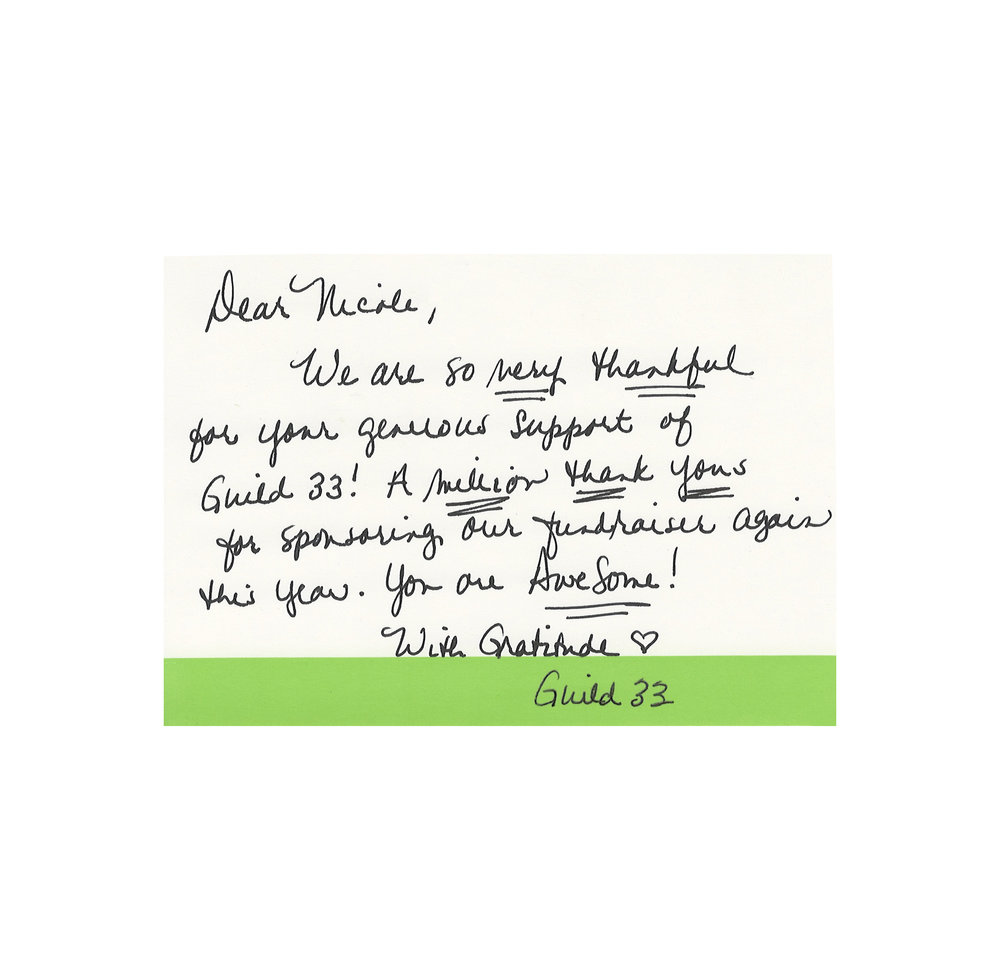 Dear Nicole,
We are so very thankful
for your generous support of
Guild 33! A million thank yous
for sponsoring our fundraiser again
this year. You are Awesome!
With Gratitude ♡
Guild 33